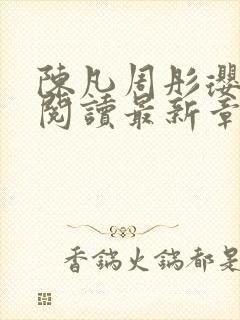 陳凡周彤瓔
閱讀最新章
香鍋火鍋都是